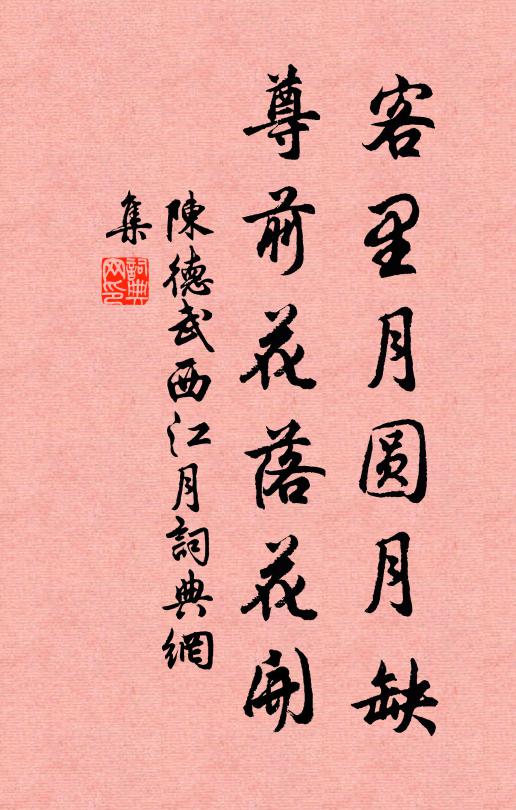 客里月圆月缺
尊前花落花開
陳德武西江月詞典網
集
詞典网印